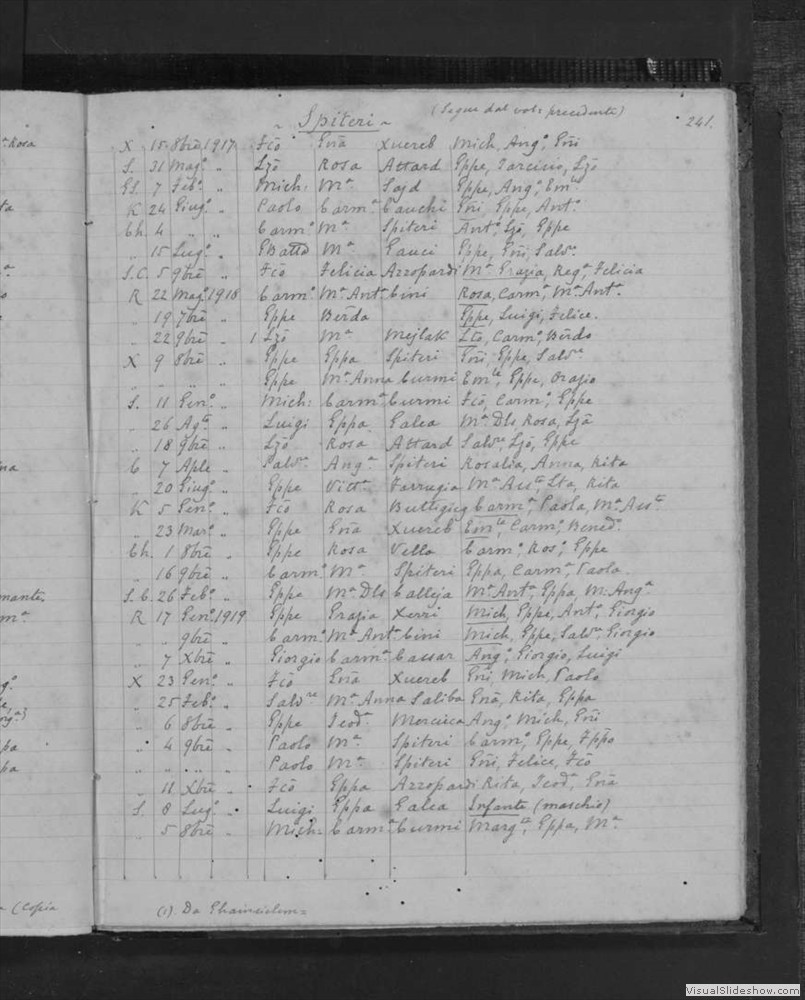 (Segue dal vol: precedente)
~ Spiteri ~
241.
X 15 8bre 1917 Fcõ Gña Xuereb Mich, Angº, Gñi
S. 31 Magº " Lzõ Rosa Attard Gppe, Tarcisio, Lzõ
Gs. 7 Febº " Mich: Mª Sajd Gppe, Angº, Emle
K 24 Giugº " Paolo Carmª Cauchi Gñi, Gppe, Antª
Ch. 4 " " Carmº Mª Spiteri Antº, Lzõ, Gppe
" 15 Lugº " GBatta Mª Gauci Gppe, Gñi, Salvre
S.C. 5 9bre " Fcõ Felicia Azzopardi Mª Grazia, Regª, Felicia
R 22 Magº 1918 Carmº Mª Antª Cini Rosa, Carmª, Mª Antª
" 19 7bre " Gppe Berda Gppe, Luigi, Felice.
" 22 9bre " 1 Lzõ Mª Mejlak Lzõ, Carmº, Berdo
X 9 8bre " Gppe Gppa Spiteri Gñi, Gppe, Salvre
" " " " Gppe Mª Anna Curmi Emle, Gppe, Orazio
S. 11 Genº " Mich: Carmª Curmi Fcõ, Carmº, Gppe
" 26 Agto " Luigi Gppa Galea Mª Dls Rosa, Lzã
" 18 9bre " Lzõ Rosa Attard Salvre, Lzõ, Gppe
C 7 Aple " Salvre Angª Spiteri Rosalia, Anna, Rita
" 20 Giugº " Gppe Vittª Farrugia Mª Asta, Rita
K 5 Genº " Fcõ Rosa Buttigieg Carmª, Paola, Mª Assta
" 23 Marº " Gppe Gña Xuereb Emle, Carmº, Bened.
Ch. 1 8bre " Gppe Rosa Vella Carmº, Rosº, Gppe
" 16 9bre " Carmº Mª Spiteri Gppa, Carmª, Paola
S.C. 26 Febº " Gppe Mª Dls Calleja Mª Antª, Gppa, M. Angª
R 17 Genº 1919 Gppe Grazia Xerri Mich, Gppe, Antº, Giorgio
" 9bre " Carmº Mª Antª Cini Mich, Gppe, Salvre, Giorgio
" 7 Xbre " Giorgio Carmª Cassar Angº, Giorgio, Luigi
X 23 Genº " Fcõ Gña Xuereb Gñi, Mich, Paolo
" 25 Febº " Salvre Mª Anna Saliba Gña, Rita, Gppa
" 6 8bre " Gppe Teodª Mercieca Angº, Mich, Gñi
" 4 9bre " Paolo Mª Spiteri Carmº, Gppe, Fppo
" " " " Paolo Mª Spiteri Gñi, Felice, Fcõ
" 11 Xbre " Fcõ Gppa Azzopardi Rita, Teodª, Gña
S. 8 Lugº " Luigi Gppa Galea Infante (maschio)
" 5 8bre " Mich: Carmª Curmi Margta, Gppa, Mª
(1) Da Ghainsielem=